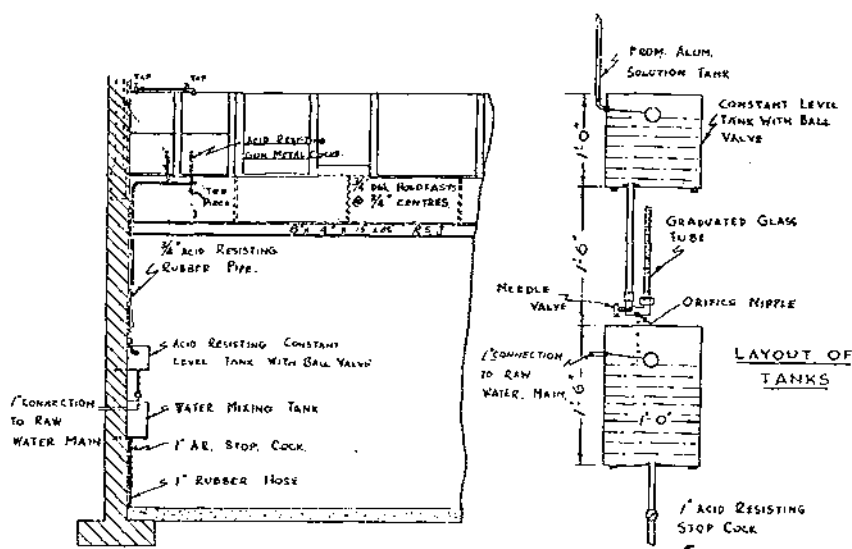 TAP
TAP
ACID RESISTING
GUN METAL COCKS.
TEE
PIECE
3/4" DIA. HOLDFASTS
@ 3/4" CENTRES.
R S J
3/4" ACID RESISTING
RUBBER PIPE.
ACID RESISTING CONSTANT
LEVEL TANK WITH BALL VALVE
WATER MIXING TANK
1" CONNECTION
TO RAW
WATER MAIN
1" AR. STOP COCK.
1" RUBBER HOSE
FROM ALUM.
SOLUTION TANK
CONSTANT LEVEL
TANK WITH BALL
VALVE
1'-0"
GRADUATED GLASS
TUBE
1'-6"
NEEDLE
VALVE
ORIFICE NIPPLE
1" CONNECTION
TO RAW
WATER. MAIN.
1'-6"
1'-0"
LAYOUT OF
TANKS
1" ACID RESISTING
STOP COCK